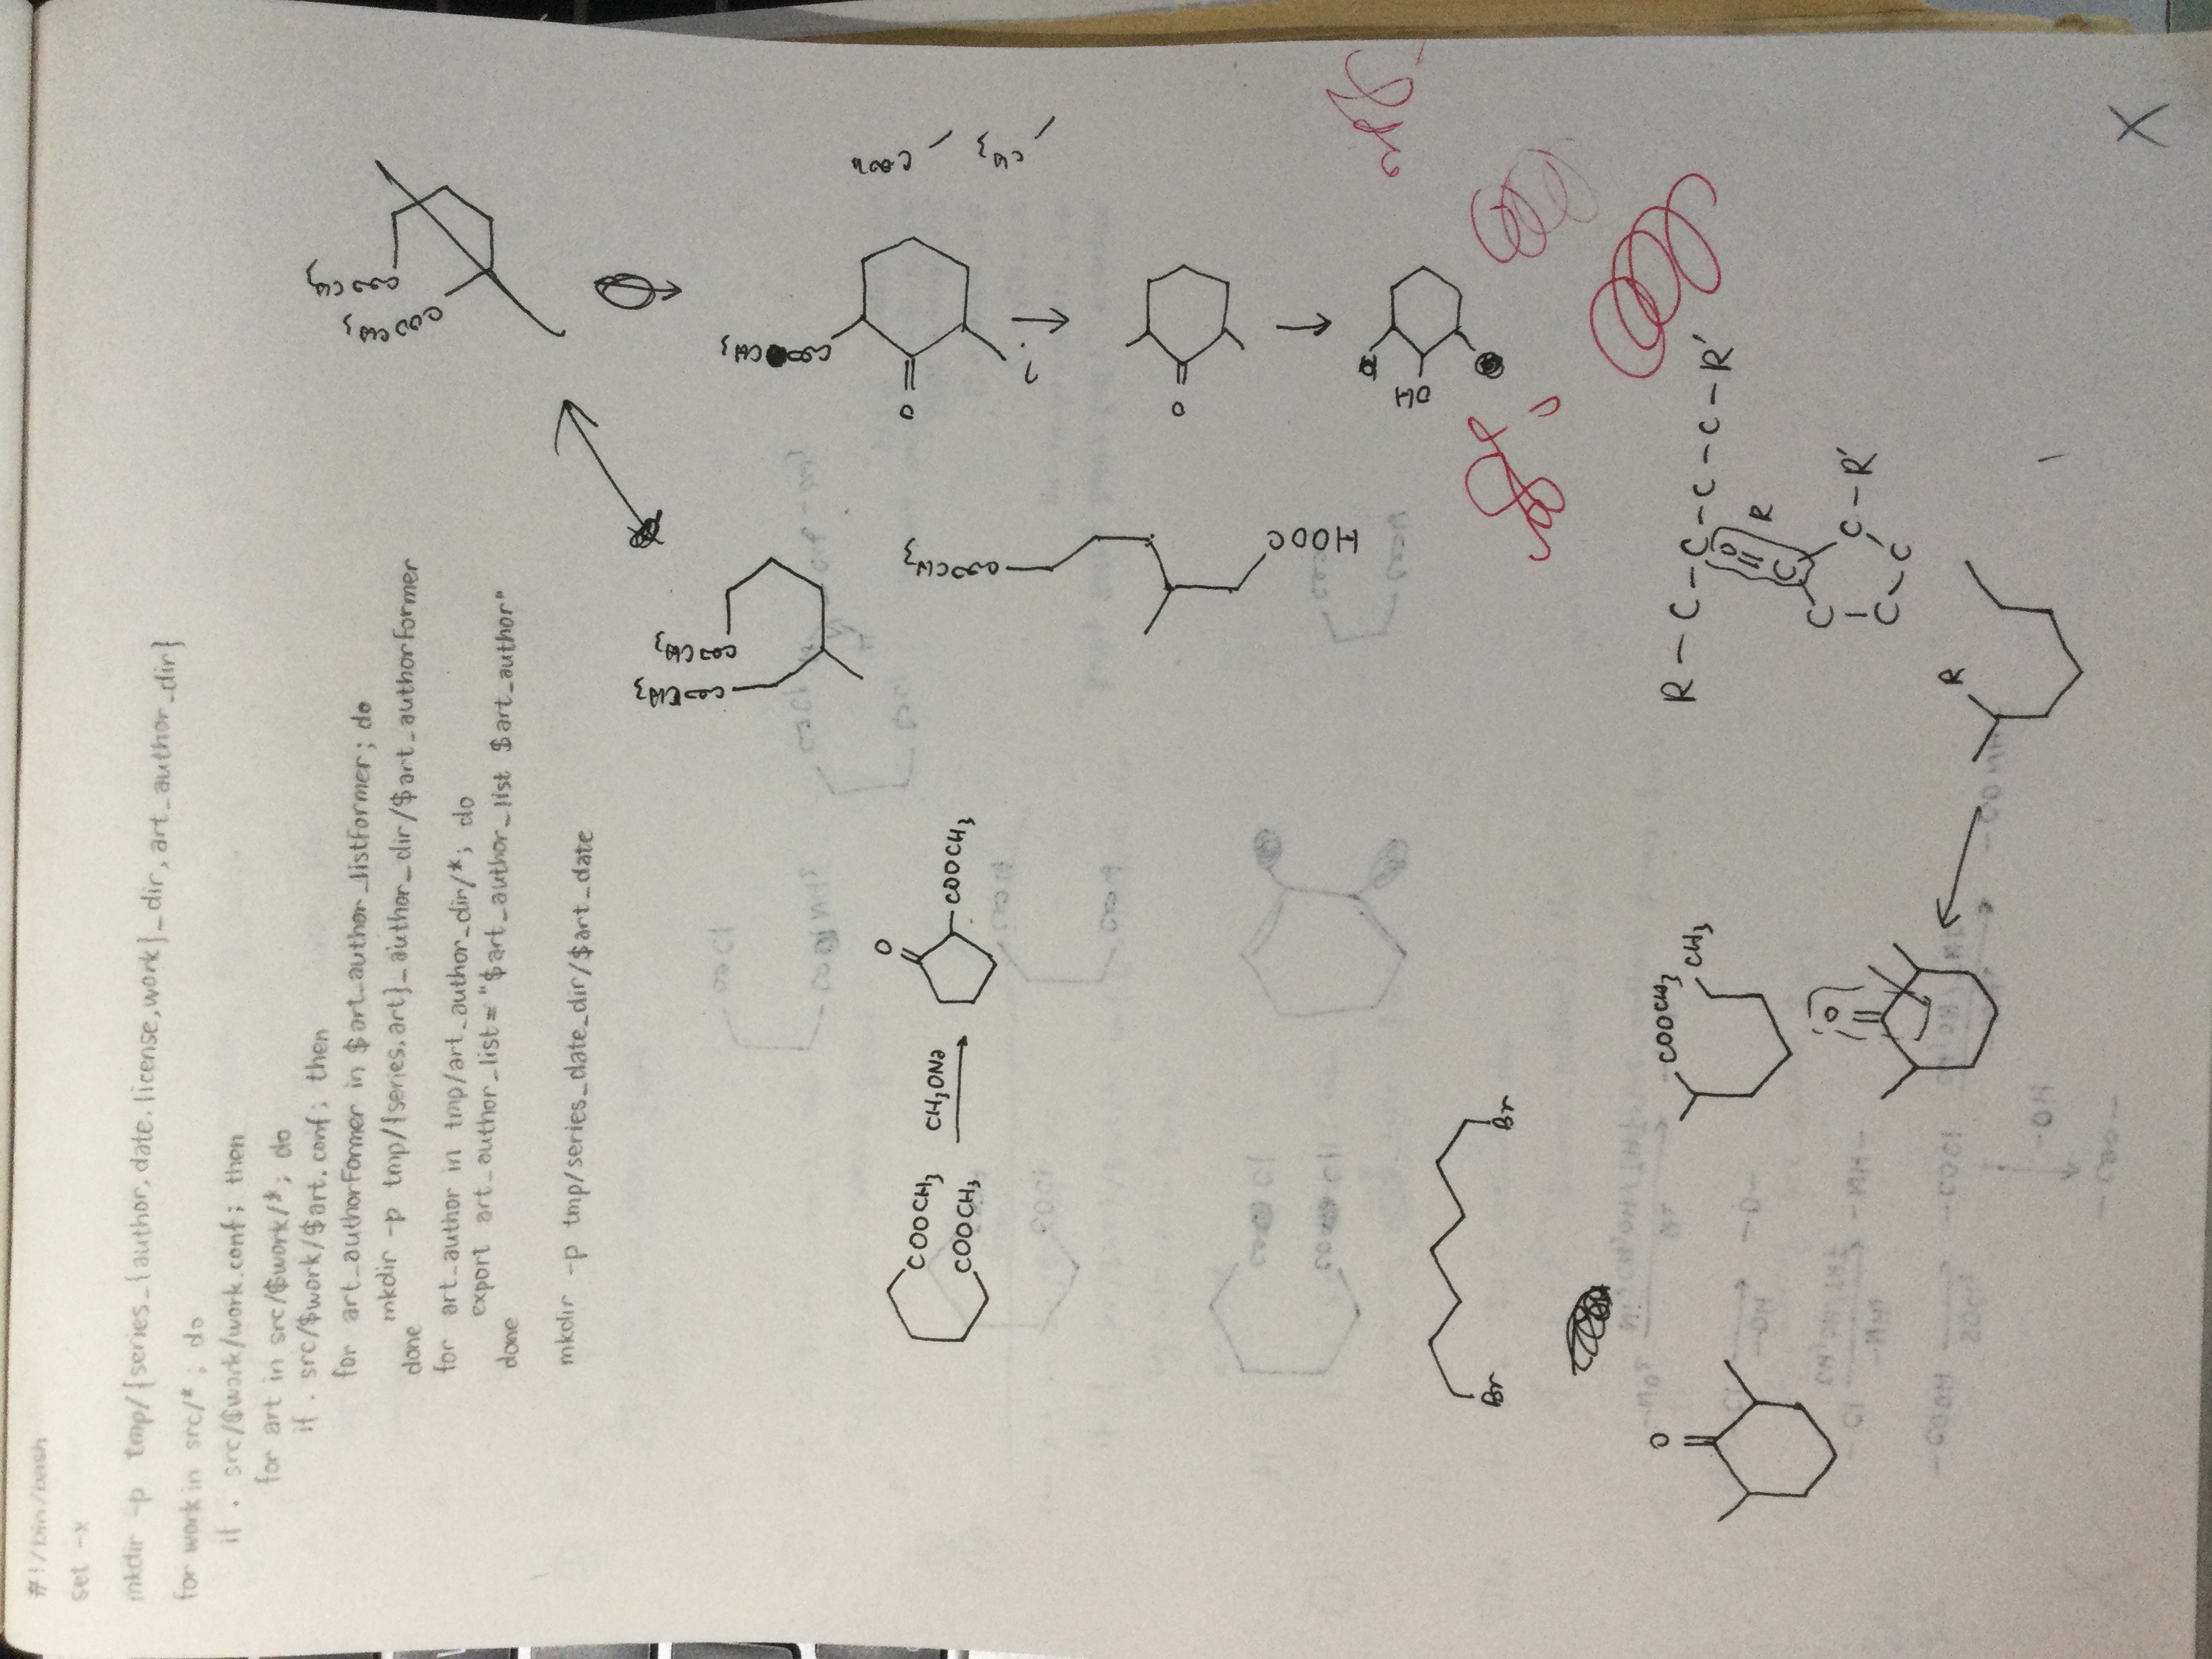 #!/bin/bash
set -x
mkdir -p tmp/{series_{author,date,license,work}_dir,art_author_dir}
for work in src/*; do
if . src/$work/work.conf; then
for art in src/$work/*; do
if . src/$work/$art.conf; then
for art_authorFormer in $art_author_listFormer; do
mkdir -p tmp/{series,art}_author_dir/$art_authorFormer
done
for art_author in tmp/art_author_dir/*; do
export art_author_list="$art_author_list $art_author"
done
mkdir -p tmp/series_date_dir/$art_date
COOCH3
COOCH3
COOCH3
COOCH3
COOCH3
COOCH3
CH3ONa
O
COOCH3
COOCH3
O
COOCH3
?
COOH
CH3
HOOC
O
OH
Br
Br
O
COOCH3
CH3
R-C-C-C-C-R'
O
R
C
C
C-R'
C
C
O
R
X